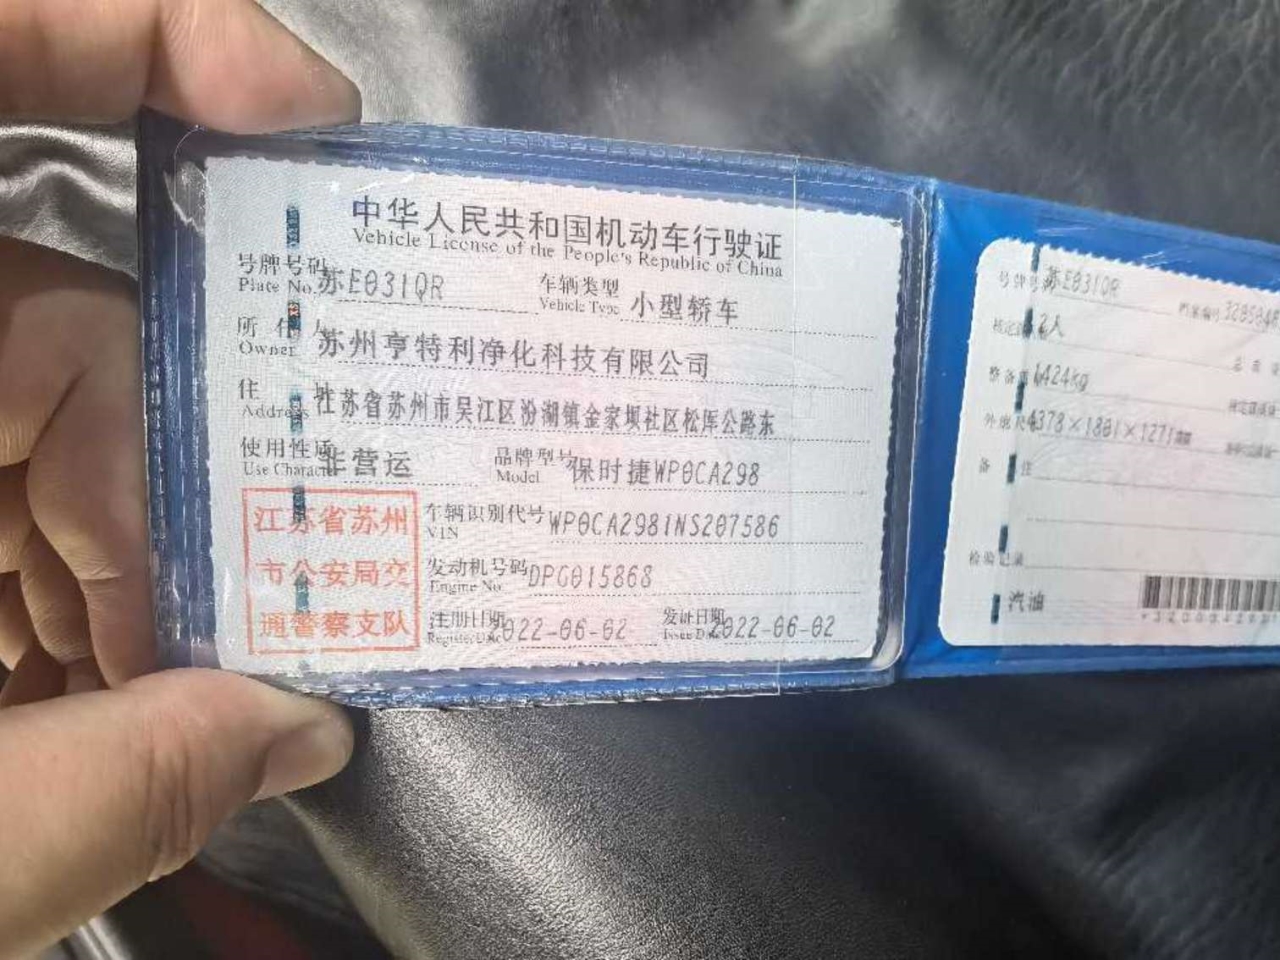 中华人民共和国机动车行驶证
Vehicle License of the People's Republic of China
号牌号码 苏E031QR 车辆类型 小型轿车
Plate No. Vehicle Type
所 人 苏州亨特利净化科技有限公司
Owner
住 址 江苏省苏州市吴江区汾湖镇金家坝社区松厍公路东
Address
使用性质 非营运 品牌型号 保时捷WP0CA298
Use Character Model
江苏省苏州
市公安局交
通警察支队
车辆识别代号 WP0CA2981NS207586
VIN
发动机号码 DPG015868
Engine No.
注册日期 022-06-02 发证日期 2022-06-02
Register Date Issue Date
号牌号 苏E031QR 档案编号
核定 2人
整备质 1424kg
外廓尺 4378×1801×1271mm
备 注
检验记录
汽油